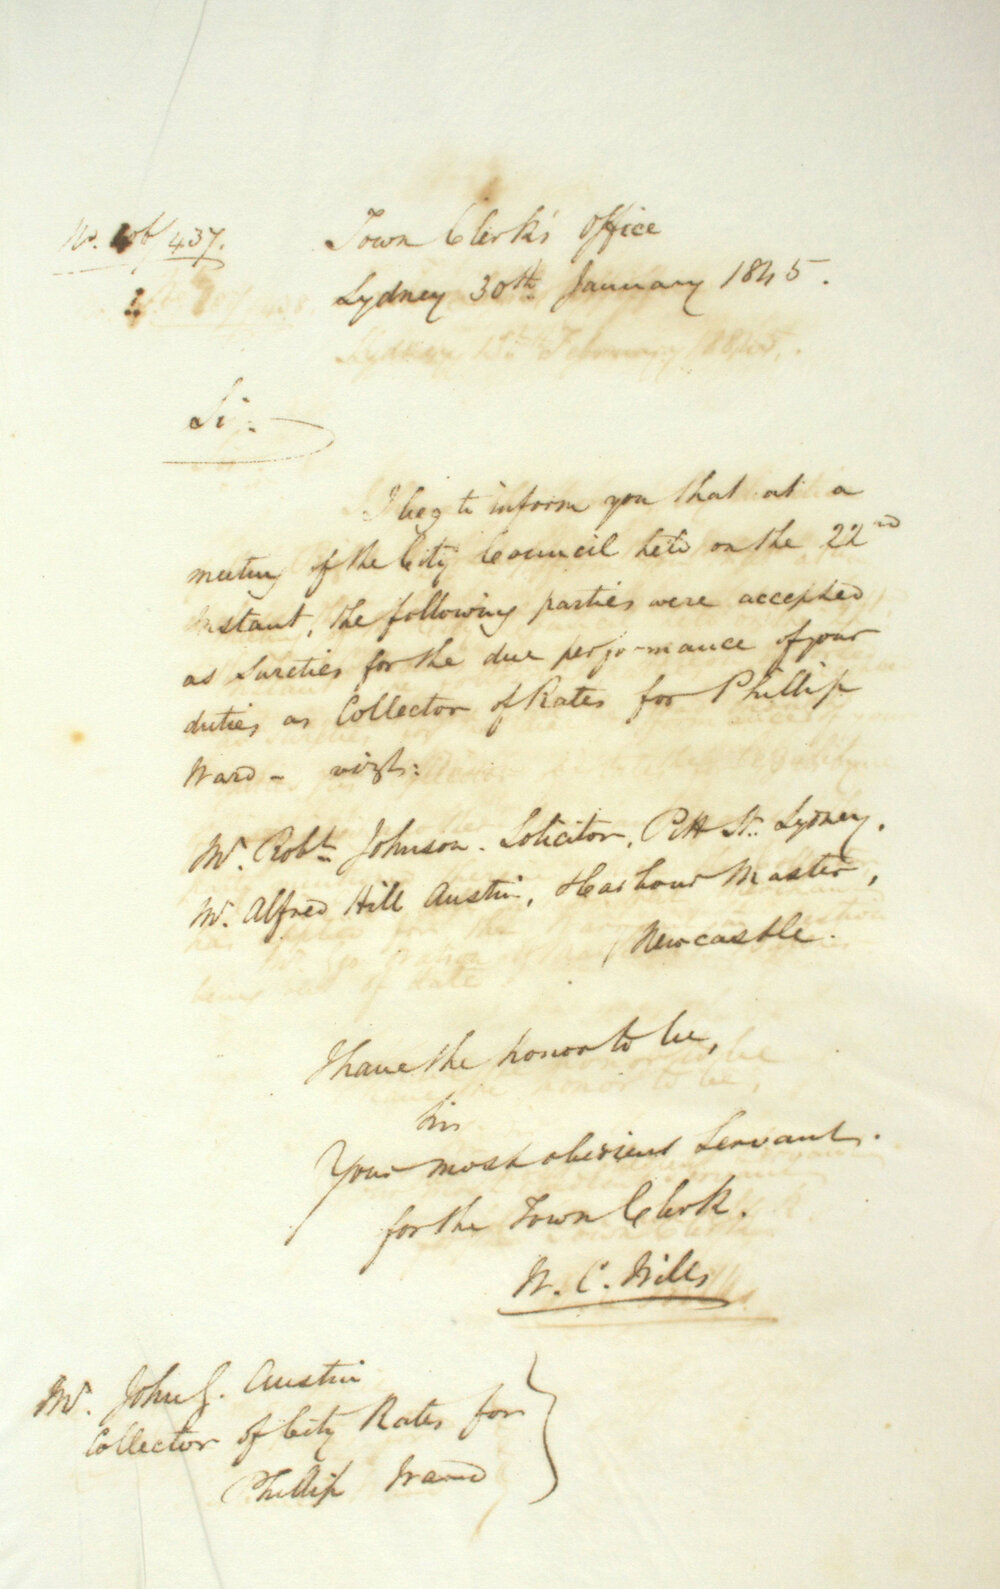 No. 437.
Town Clerk's Office
Sydney 30th January 1845.
Sir.
I beg to inform you that at a
meeting of the City Council held on the 22nd
Instant, the following parties were accepted
as Sureties for the due performance of your
duties as Collector of Rates for Phillip
Ward - vizt:
Mr. Robt. Johnson. Solicitor, Pitt St. Sydney.
Mr. Alfred Hill Austin, Harbour Master,
Newcastle.
I have the honor to be,
Sir
Your most obedient Servant.
for the Town Clerk.
W. C. Wills
Mr. John G. Austin
Collector of City Rates for
Phillip Ward